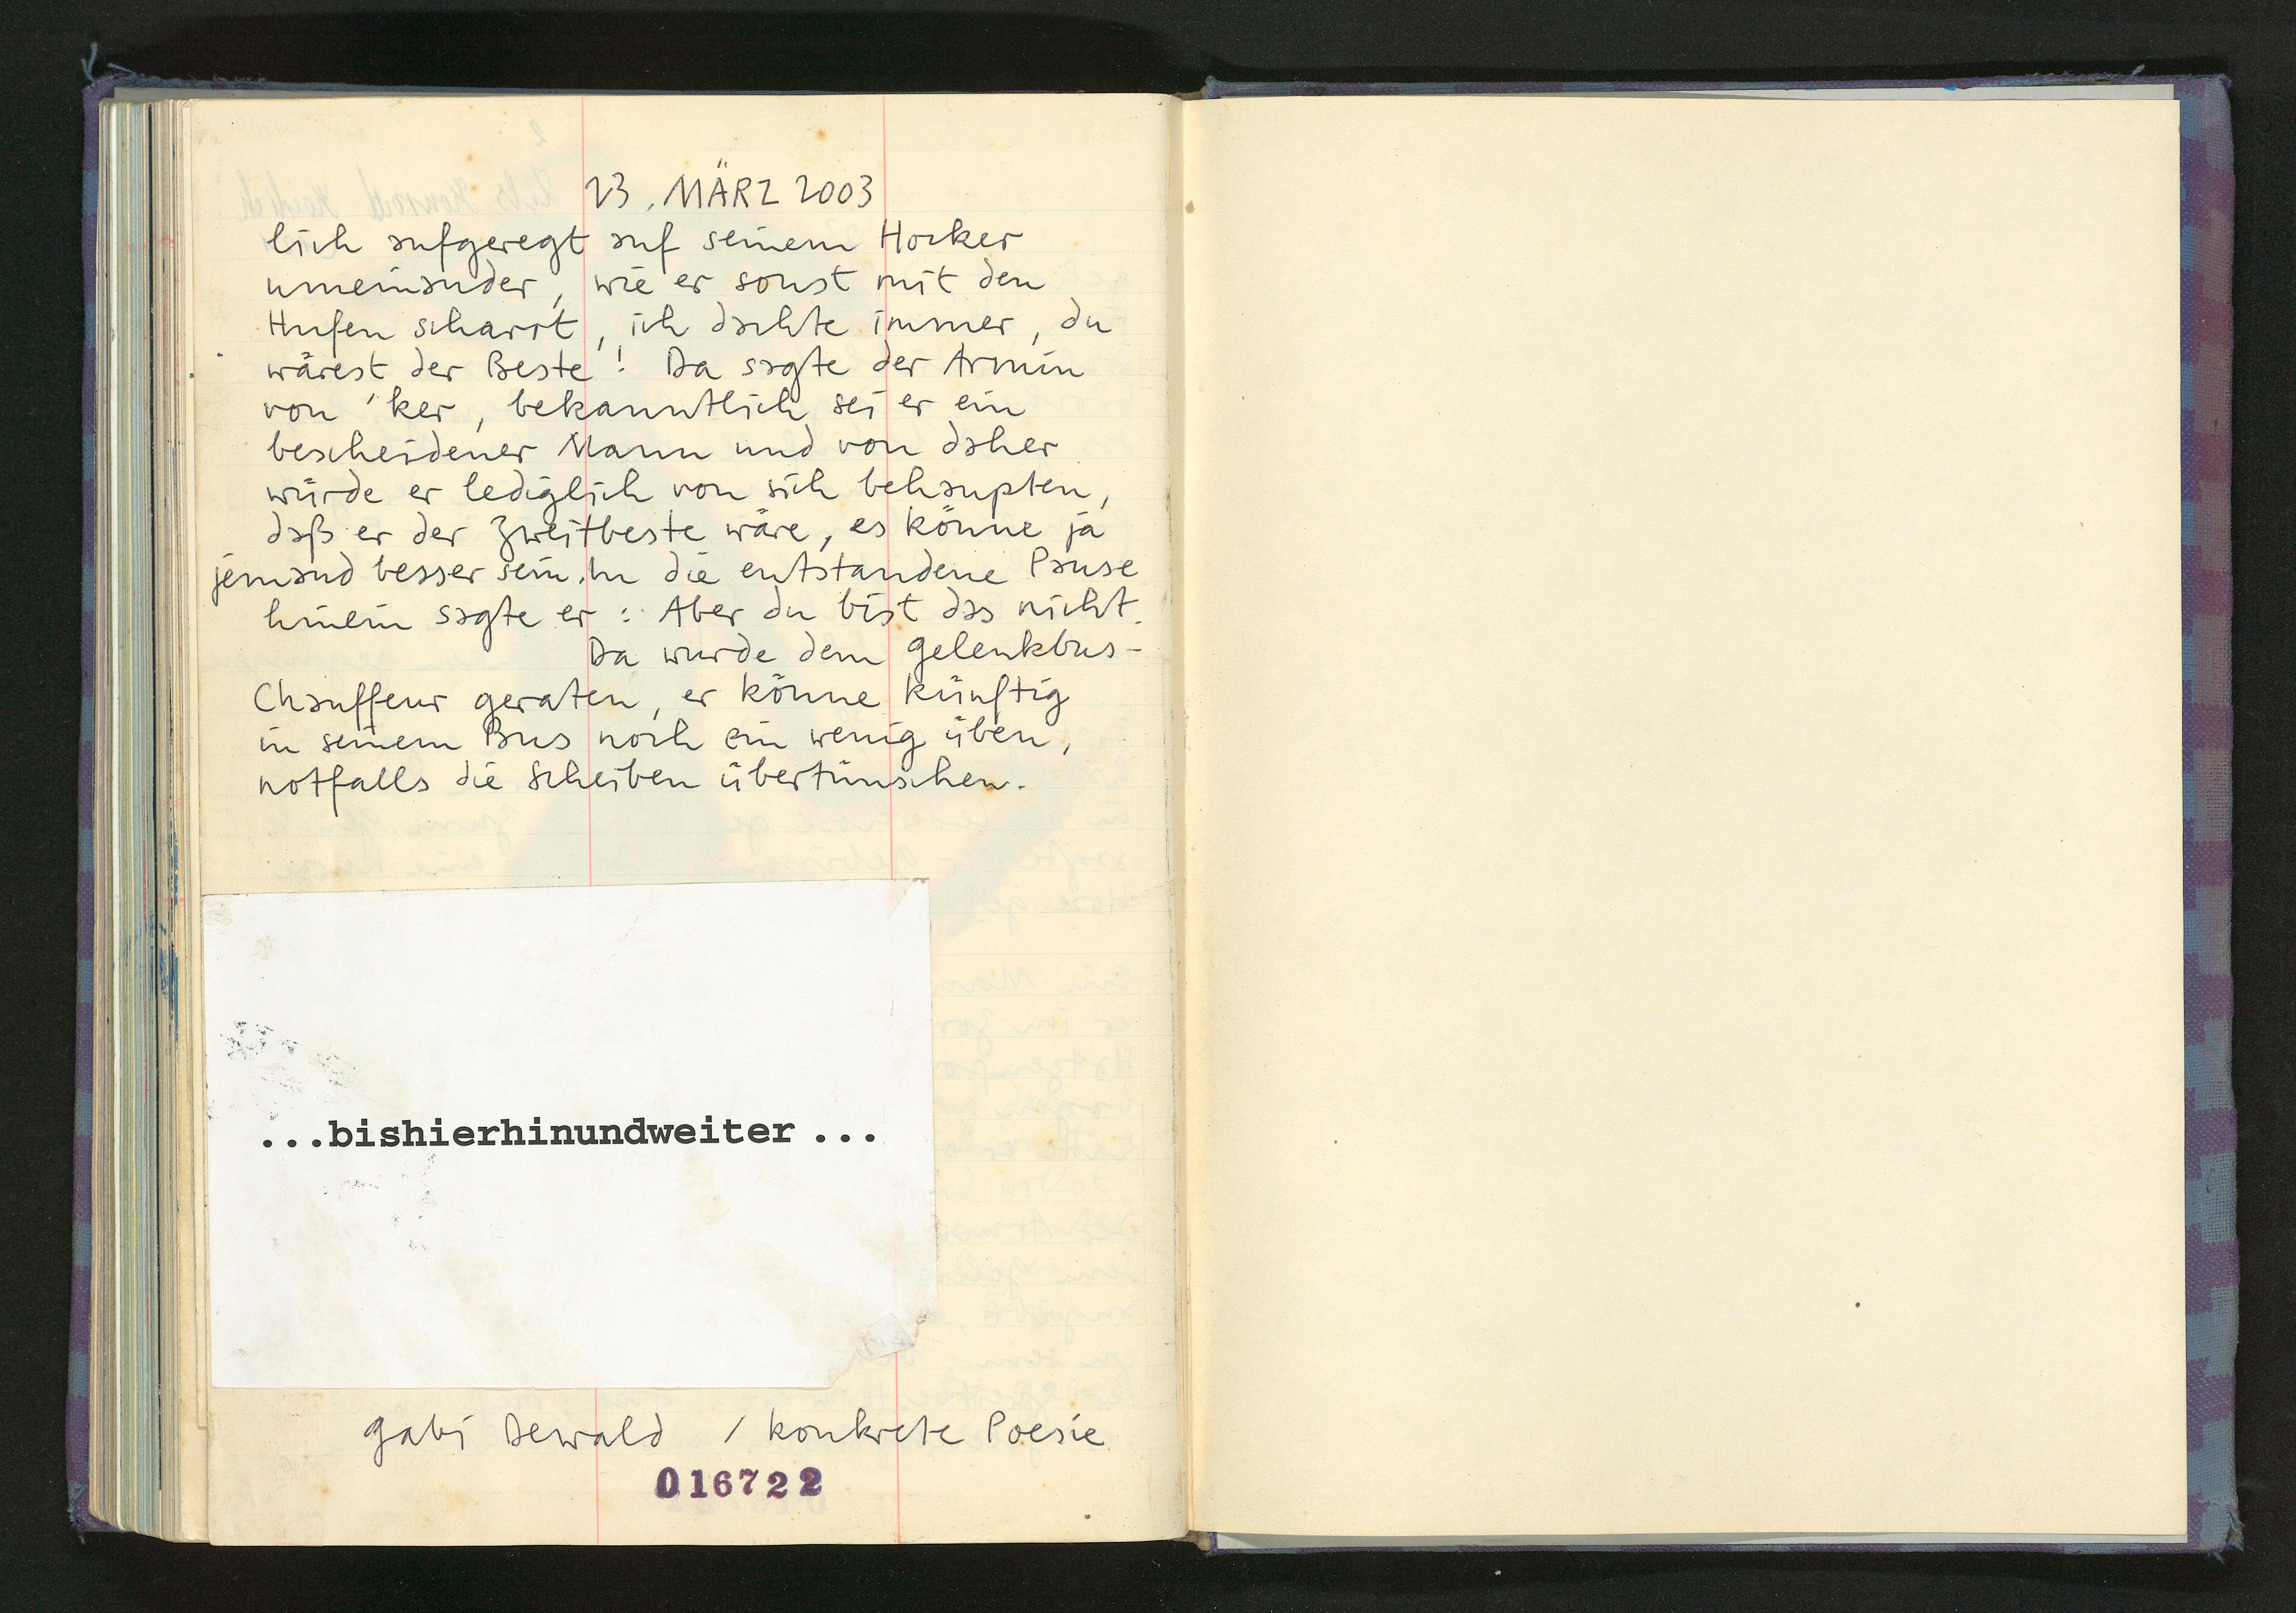 23. MÄRZ 2003
lich aufgeregt auf seinem Hocker
umeinander, wie er sonst mit den
Hufen scharrt, ich dachte immer, du
wärest der Beste! Da sagte der Armin
von 'ker, bekanntlich sei er ein
bescheidener Mann und von daher
würde er lediglich von sich behaupten,
daß er der Zweitbeste wäre, es könne ja
jemand besser sein. In die entstandene Pause
hinein sagte er: Aber du bist das nicht.
Da wurde dem Gelenkbus-
Chauffeur geraten, er könne künftig
in seinem Bus noch ein wenig üben,
notfalls die Scheiben übertünschen.
...bishierhinundweiter...
Gabi Dewald / konkrete Poesie
016722